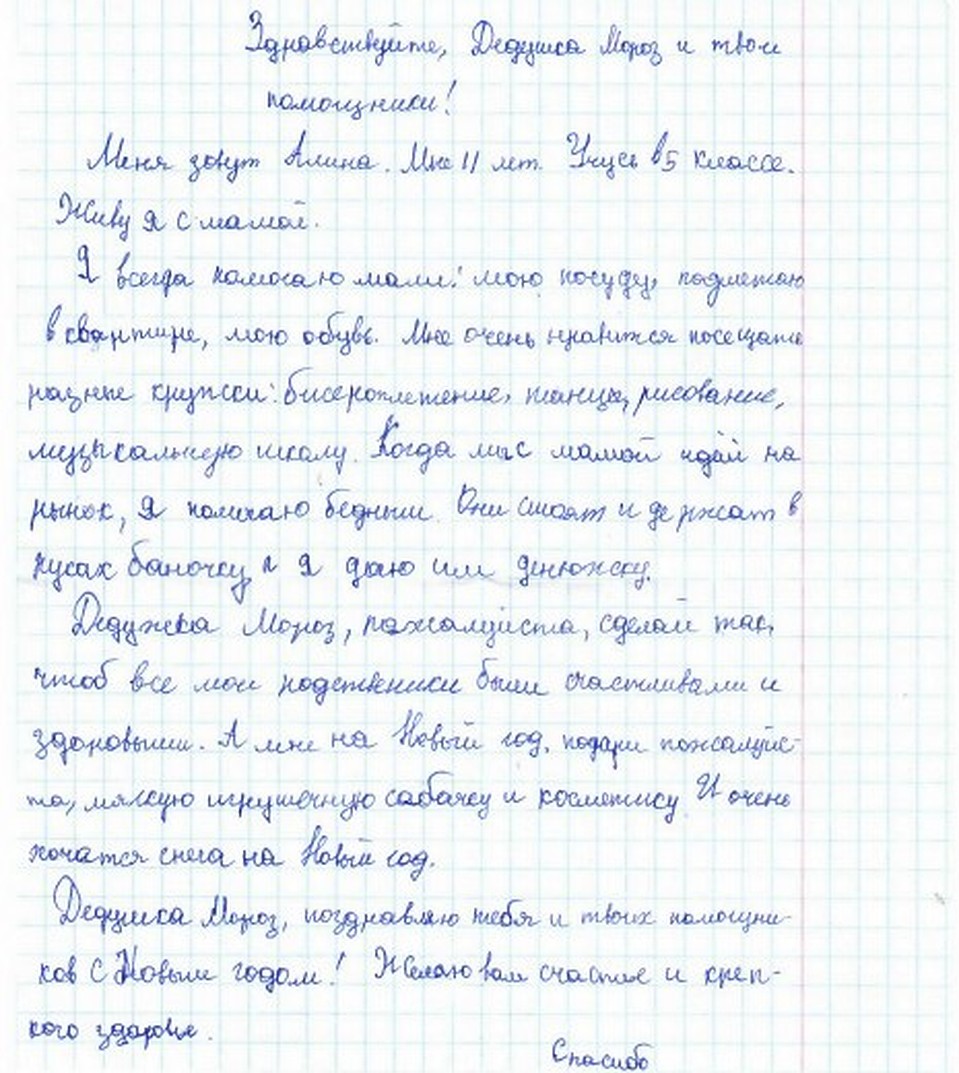 Здравствуйте, Дедушка Мороз и твои
помощники!
Меня зовут Алина. Мне 11 лет. Учусь в 5 классе.
Живу я с мамой.
Я всегда помогаю маме: мою посуду, подметаю
в квартире, мою обувь. Мне очень нравится посещать
разные кружки: бисероплетение, танцы, рисование,
музыкальную школу. Когда мы с мамой идём на
рынок, я помогаю бедным. Они стоят и держат в
руках баночку и я даю им денюжку.
Дедужка Мороз, пожалуйста, сделай так,
чтоб все мои родственики были счастливами и
здоровыми. А мне на Новый год, подари пожалуйс-
та, мягкую игрушечную сабачку и косметику. И очень
хочатся снега на Новый год.
Дедушка Мороз, поздравляю тебя и твоих помощни-
ков с Новым годом! Желаю вам счастье и креп-
кого здоровье.
Спасибо